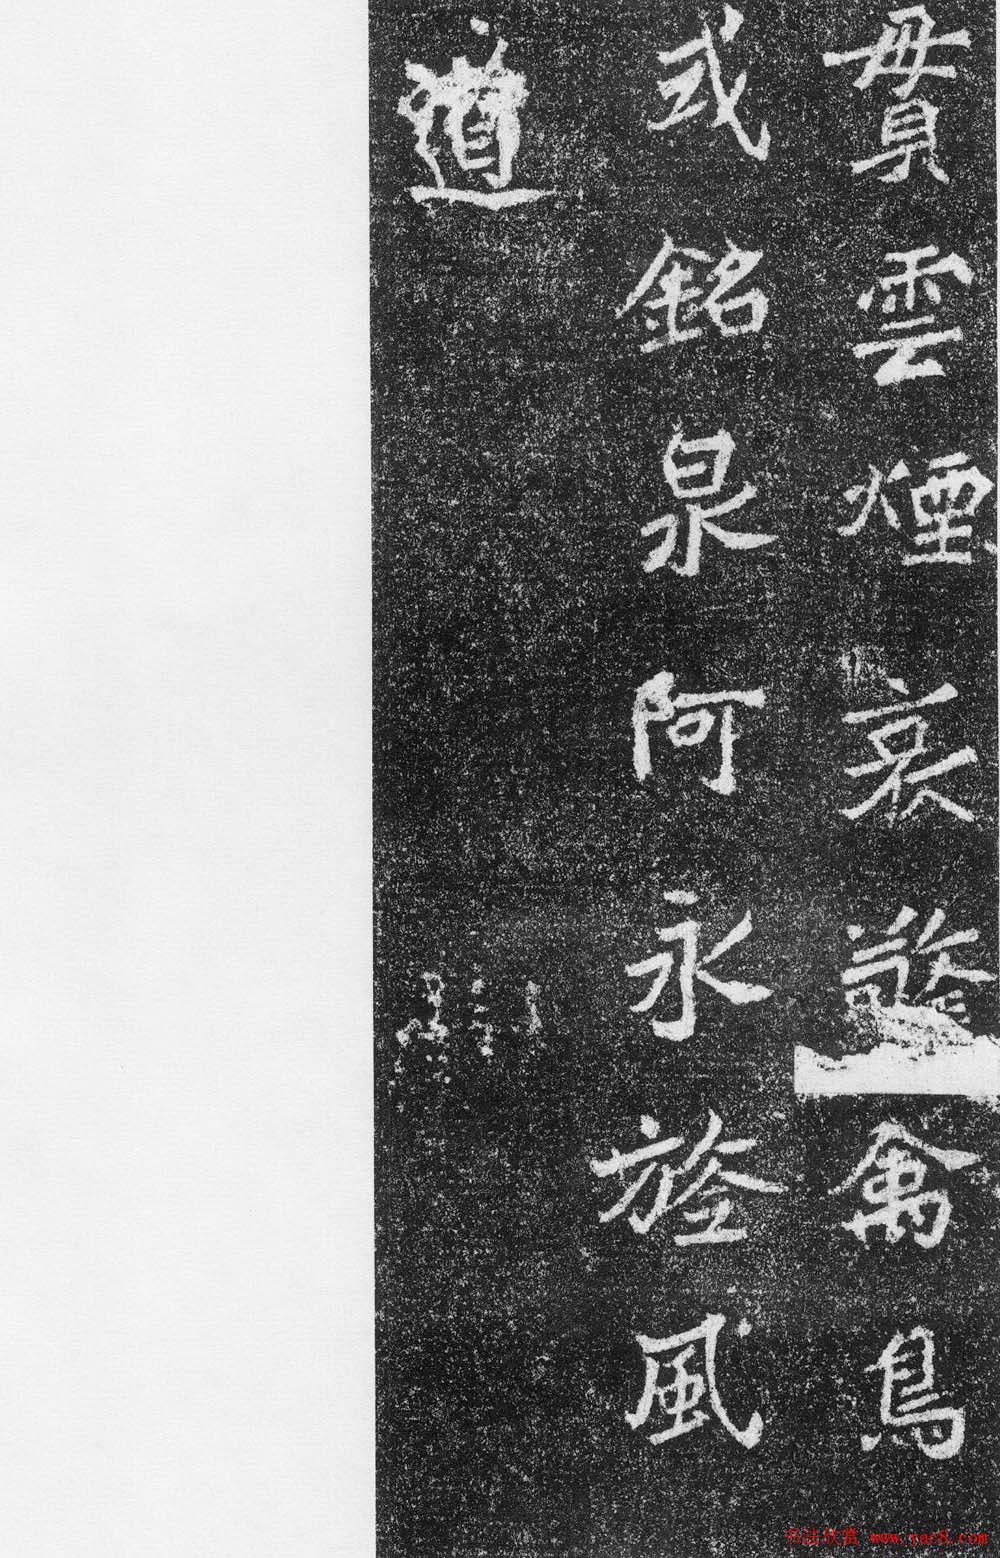 貫雲煙哀感禽鳥
式銘泉阿永旌風
道
书法欣赏 www.yac8.com